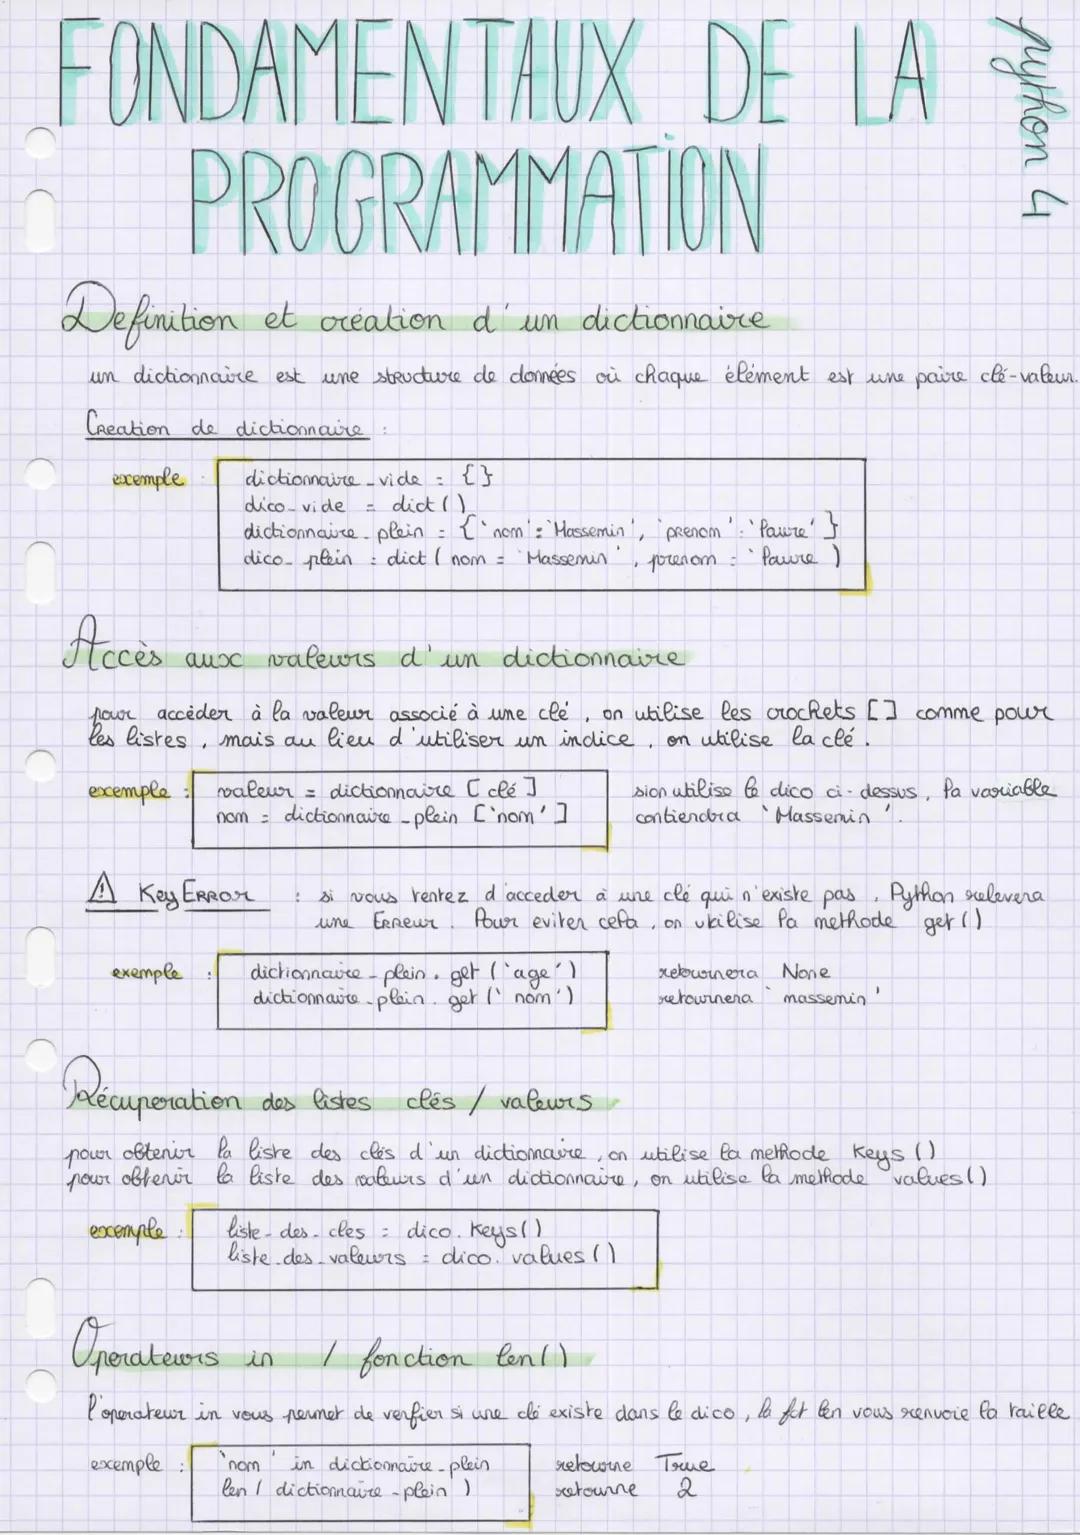 FONDAMENTAUX DE LA
PROGRAMMATION
python 4
Definition et création d'un dictionnaire
un dictionnaire est une structure de données où chaque élément est une paire clé-valeur.
Creation de dictionnaire :
exemple :
dictionnaire_vide = {}
dico_vide = dict()
dictionnaire_plein = {'nom':'Massemin', 'prenom':'Laure'}
dico_plein = dict(nom = 'Massemin', prenom = 'Laure')
Accès aux valeurs d'un dictionnaire
pour accèder à la valeur associé à une clé, on utilise les crochets [] comme pour
les listes, mais au lieu d'utiliser un indice, on utilise la clé.
exemple :
valeur = dictionnaire [clé]
nom = dictionnaire_plein ['nom']
si on utilise le dico ci-dessus, la variable
contiendra 'Massemin'.
⚠ KeyERROR : si vous tentez d'acceder à une clé qui n'existe pas, Python relevera
une Erreur. Pour eviter cela, on utilise la methode get()
exemple :
dictionnaire_plein.get('age')
dictionnaire_plein.get('nom')
retournera None
retournera 'massemin'
Récuperation des listes clés / valeurs
pour obtenir la liste des clés d'un dictionnaire, on utilise la methode Keys()
pour obtenir la liste des valeurs d'un dictionnaire, on utilise la methode values()
exemple :
liste_des_cles = dico.Keys()
liste_des_valeurs = dico.values()
Operateurs in / fonction len()
l'operateur in vous permet de verfier si une clé existe dans le dico, la fct len vous renvoie la taille
exemple :
'nom' in dictionnaire_plein
len(dictionnaire_plein)
retourne True
retourne 2